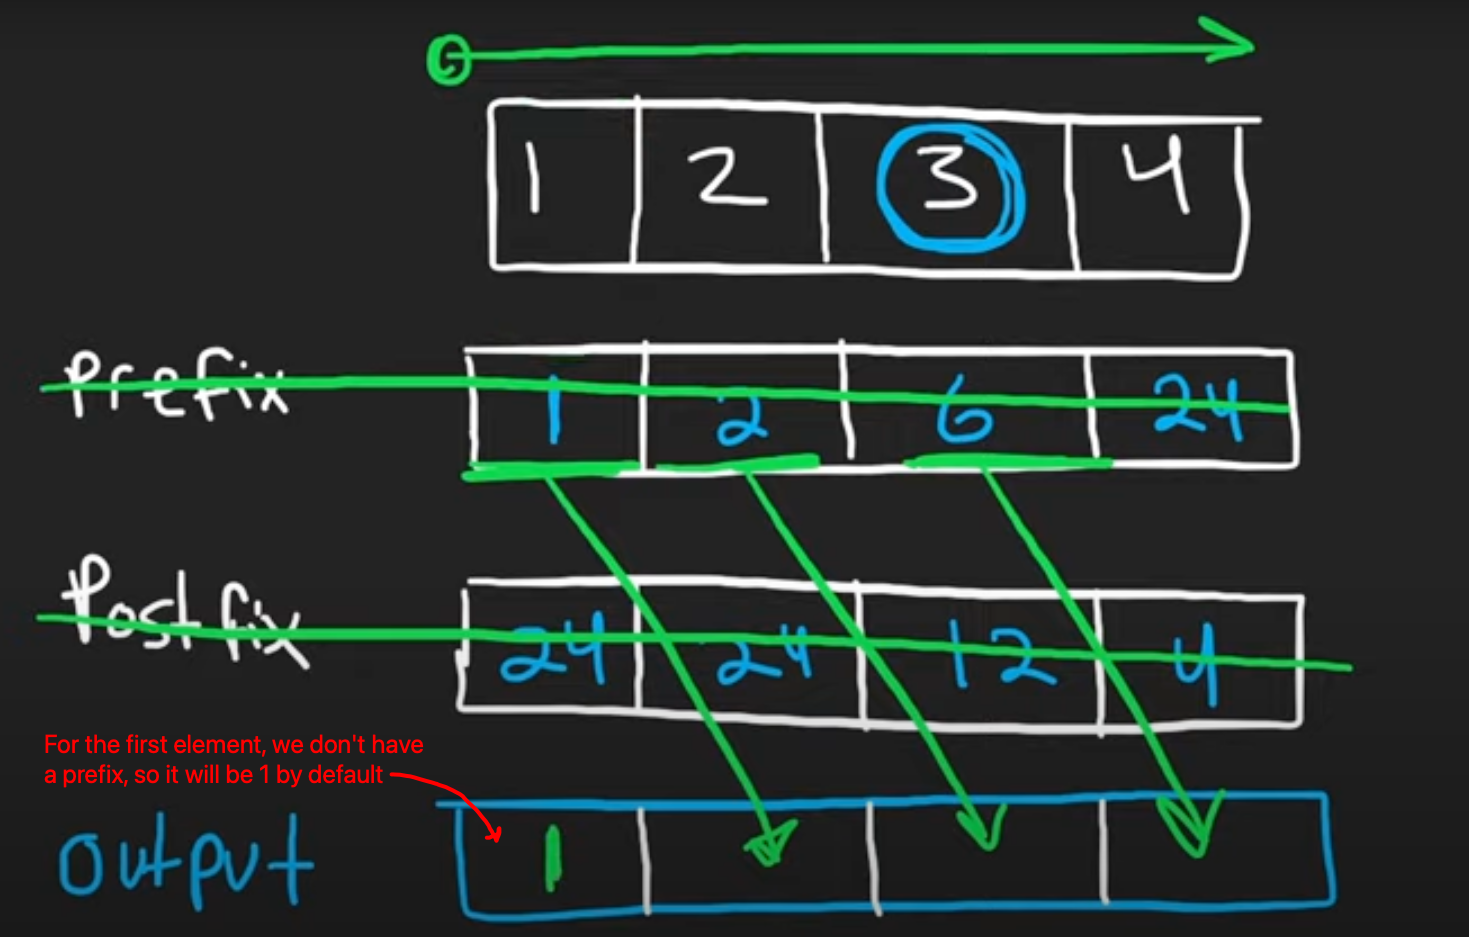 1 2 3 4
Prefix 1 2 6 24
Postfix 24 24 12 4
For the first element, we don't have
a prefix, so it will be 1 by default
Output 1